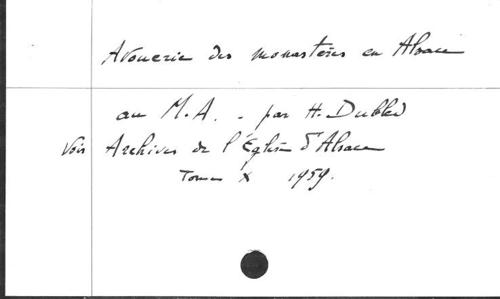 Avouerie des monastères en Alsace
au M.A. - par H. Dubled
Voir Archives de l'Église d'Alsace
Tome X 1959.